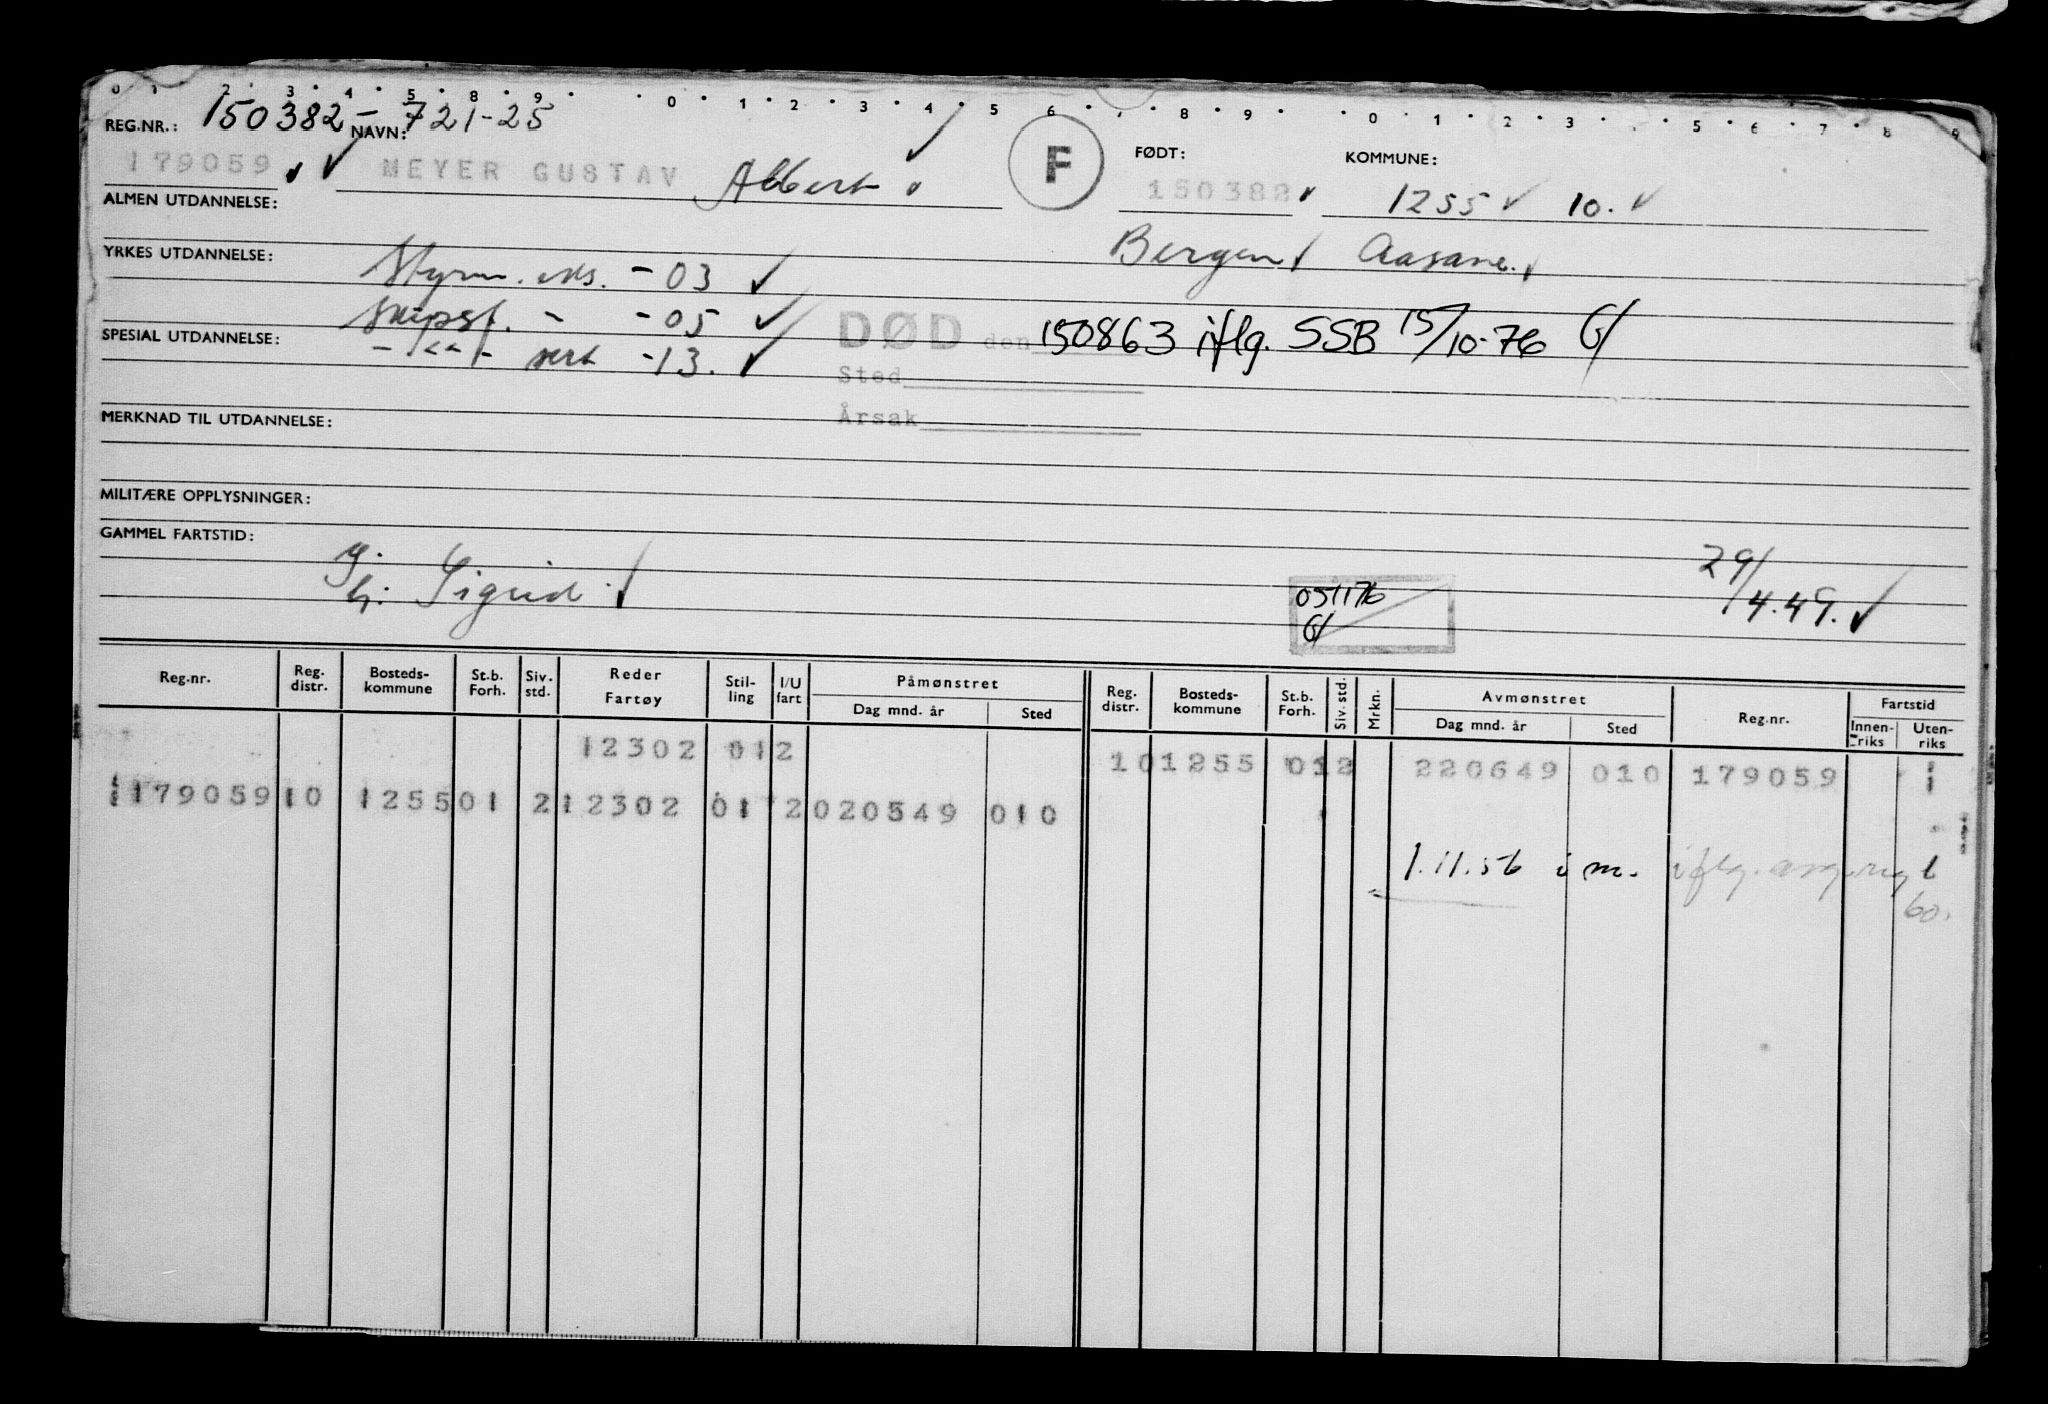 0 1 2 3 4 5 8 9 0 1 2 3 4 5 6 7 8 9 0 1 2 3 5 6 7 8 9
REG.NR.: 150382-721-25
NAVN: FØDT: KOMMUNE:
179059 MEYER GUSTAV Albert F 150382 1255 10.
ALMEN UTDANNELSE:
Bergen Aasane.
YRKES UTDANNELSE: Styrm. eks. - 03
Skipsf. - - 05
DØD den 150863 iflg. SSB 15/10-76 G/
SPESIAL UTDANNELSE: -"- sert - 13.
Sted
Årsak
MERKNAD TIL UTDANNELSE:
MILITÆRE OPPLYSNINGER:
GAMMEL FARTSTID:
g.
h. Sigrid.
29/4.49.
051176
G/
Reg.nr. Reg. distr. Bosteds-kommune St.b. Forh. Siv. std. Reder Fartøy Stil-ling I/U fart Påmønstret Dag mnd. år Sted Reg. distr. Bosteds-kommune St.b. Forh. Siv. std. Mrkn. Avmønstret Dag mnd. år Sted Reg.nr. Fartstid Innen-riks Uten-riks
12302 012 101255 012 220649 010 179059 1
1179059 10 1255 01 2 12302 01 2 020549 010
1.11.56 i m. iflg.
60.